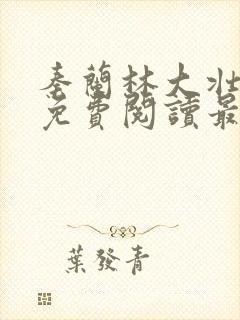 秦蘭林大壯
免費閱讀最
葉發青